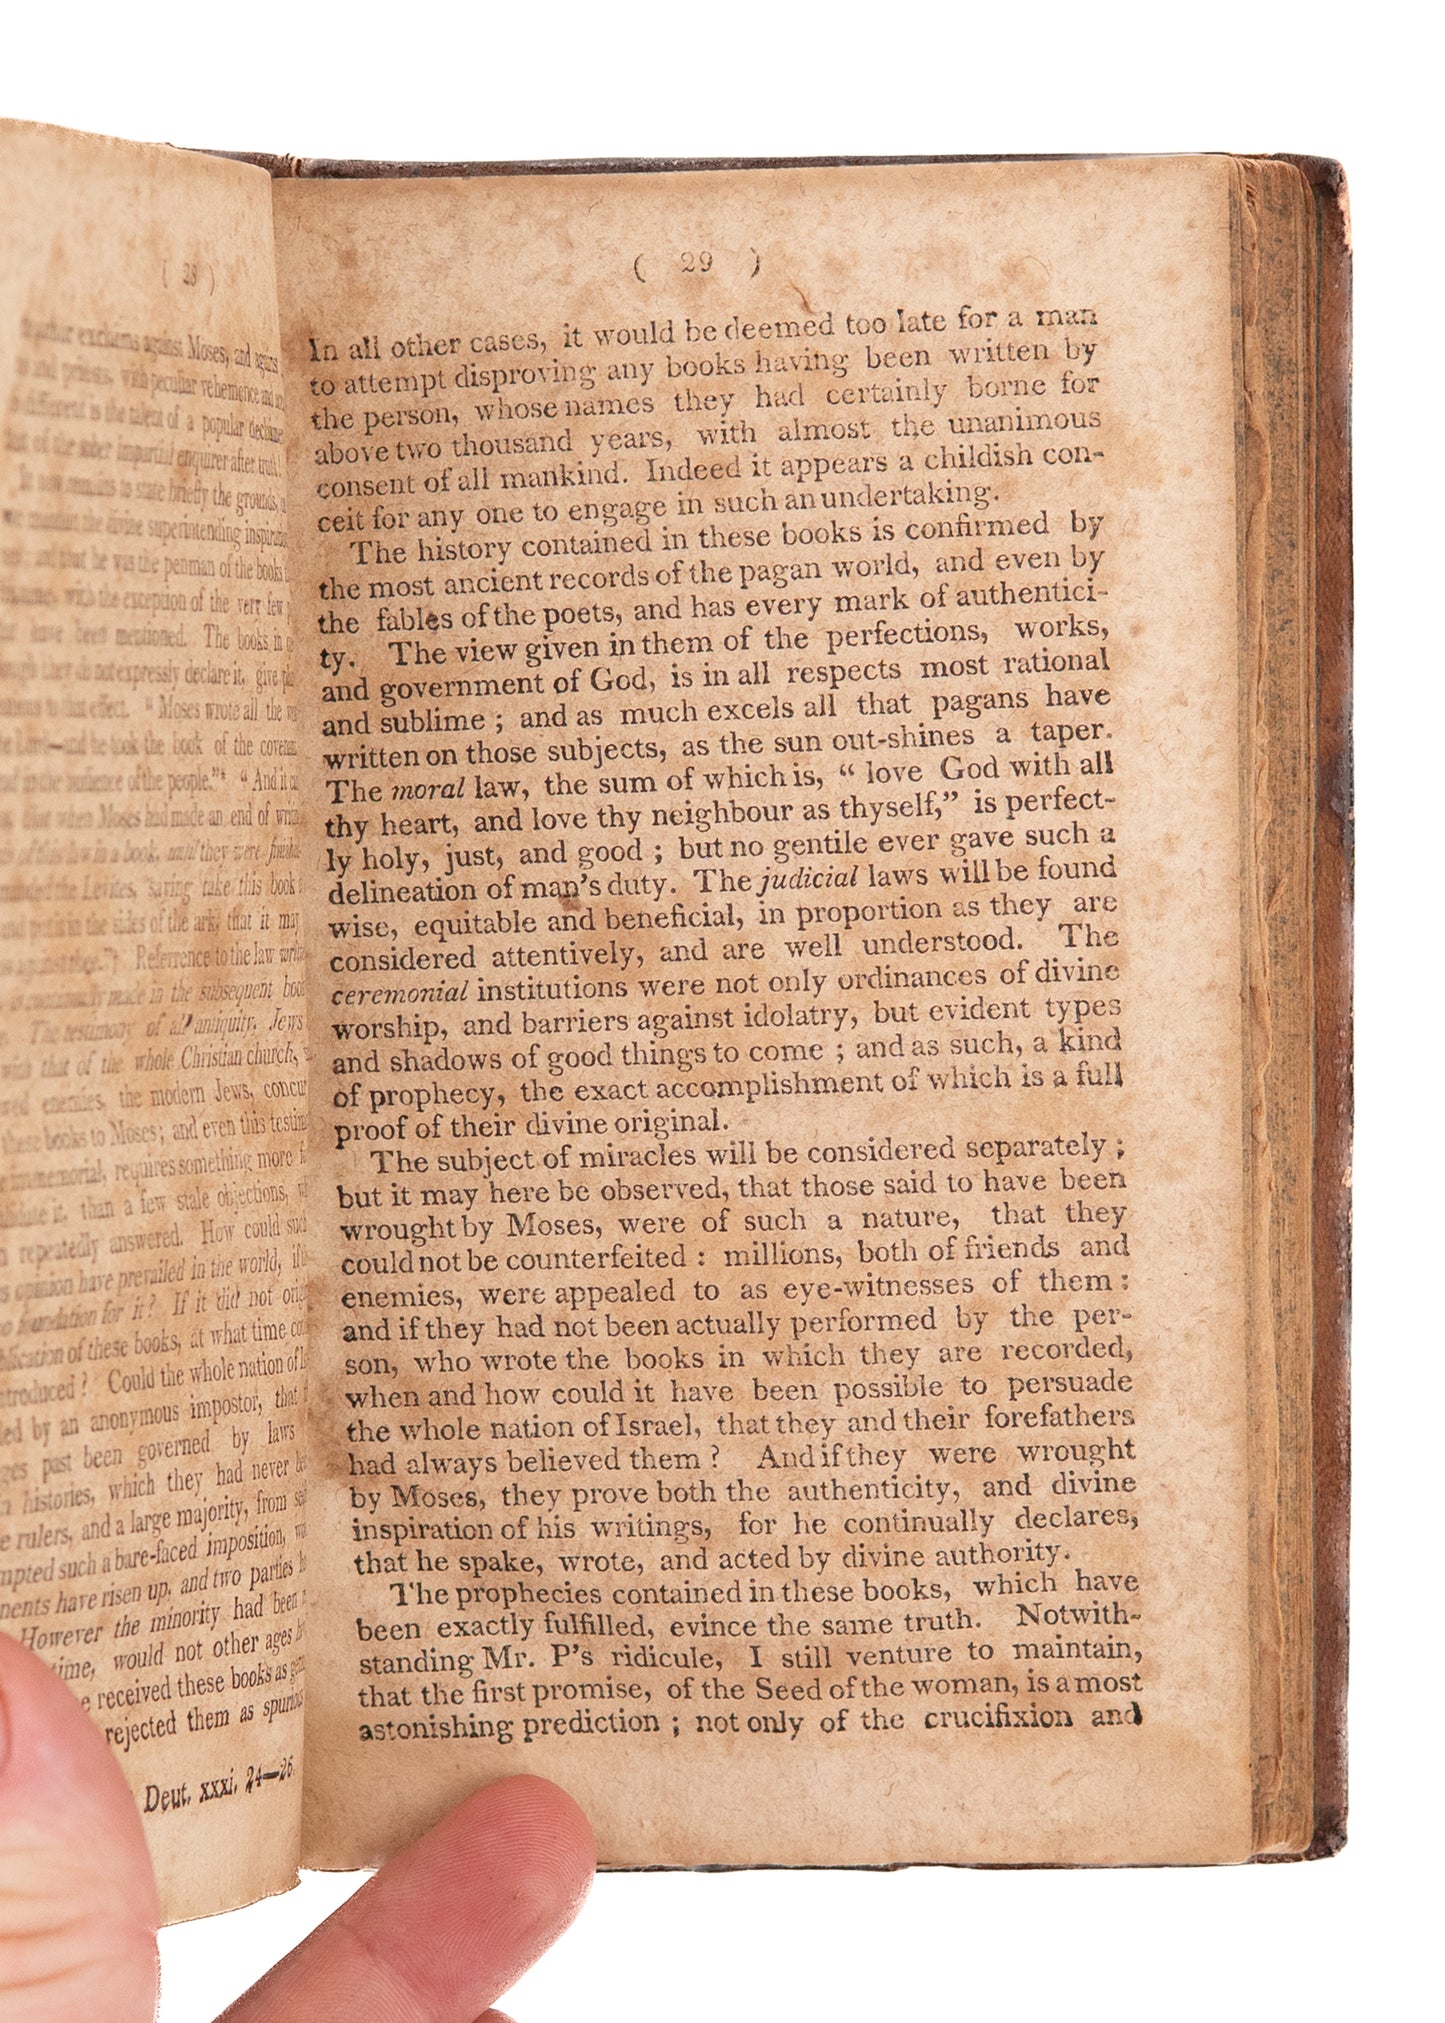 ( 28 )
author exclaims against Moses, and
and priests, with peculiar vehemence and
different is the talent of a popular
that of the sober impartial enquirer after truth!
It now remains to state briefly the grounds,
divine superintending
and that he was the penman of the books
with the exception of the very few
have been mentioned. The books
though they do not expressly declare it, give
to that effect. " Moses wrote all the
the Lord—and he took the book of the
in the audience of the people."* " And it
that when Moses had made an end of
of this law in a book, until they were
the Levites, saying take this book
and put it in the sides of the ark, that it may
Referrence to the law
is continually made in the subsequent
The testimony of all antiquity, Jews
with that of the whole Christian church,
enemies, the modern Jews,
these books to Moses; and even this
requires something more
it, than a few stale objections,
repeatedly answered. How could
opinion have prevailed in the world, if
foundation for it? If it did not
of these books, at what time
Could the whole nation of
by an anonymous impostor, that
past been governed by laws
histories, which they had never
rulers, and a large majority, from
such a bare-faced imposition,
have risen up, and two parties
However the minority had been
time, would not other ages
received these books as
rejected them as
Deut. xxxi. 24—26.
( 29 )
In all other cases, it would be deemed too late for a man
to attempt disproving any books having been written by
the person, whose names they had certainly borne for
above two thousand years, with almost the unanimous
consent of all mankind. Indeed it appears a childish con-
ceit for any one to engage in such an undertaking.
The history contained in these books is confirmed by
the most ancient records of the pagan world, and even by
the fables of the poets, and has every mark of authentici-
ty. The view given in them of the perfections, works,
and government of God, is in all respects most rational
and sublime ; and as much excels all that pagans have
written on those subjects, as the sun out-shines a taper.
The moral law, the sum of which is, " love God with all
thy heart, and love thy neighbour as thyself," is perfect-
ly holy, just, and good ; but no gentile ever gave such a
delineation of man's duty. The judicial laws will be found
wise, equitable and beneficial, in proportion as they are
considered attentively, and are well understood. The
ceremonial institutions were not only ordinances of divine
worship, and barriers against idolatry, but evident types
and shadows of good things to come ; and as such, a kind
of prophecy, the exact accomplishment of which is a full
proof of their divine original.
The subject of miracles will be considered separately ;
but it may here be observed, that those said to have been
wrought by Moses, were of such a nature, that they
could not be counterfeited : millions, both of friends and
enemies, were appealed to as eye-witnesses of them :
and if they had not been actually performed by the per-
son, who wrote the books in which they are recorded,
when and how could it have been possible to persuade
the whole nation of Israel, that they and their forefathers
had always believed them ? And if they were wrought
by Moses, they prove both the authenticity, and divine
inspiration of his writings, for he continually declares,
that he spake, wrote, and acted by divine authority.
The prophecies contained in these books, which have
been exactly fulfilled, evince the same truth. Notwith-
standing Mr. P's ridicule, I still venture to maintain,
that the first promise, of the Seed of the woman, is a most
astonishing prediction ; not only of the crucifixion and